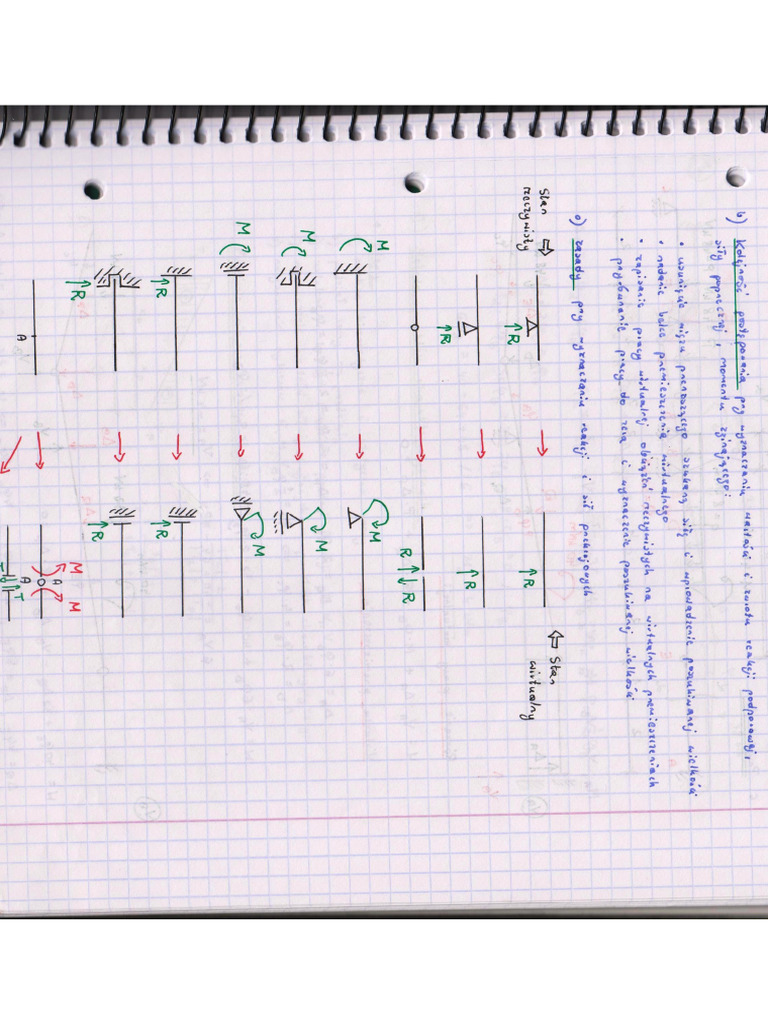 b) Kolejność postępowania przy wyznaczaniu wartości i zwrotu reakcji podporowej,
siły poprzecznej, momentu zginającego:
• usunięcie więzu przenoszącego szukaną siłę i wprowadzenie poszukiwanej wielkości
• nadanie belce przemieszczenia wirtualnego
• zapisanie pracy wirtualnej obciążeń rzeczywistych na wirtualnych przemieszczeniach
• przyrównanie pracy do zera i wyznaczenie poszukiwanej wielkości
c) zasady przy wyznaczaniu reakcji i sił przekrojowych
Stan
rzeczywisty
Stan
wirtualny
R
R
R
R
R R
M
M
M
M
M
M
R
R
R
R
A
M A M
T A T